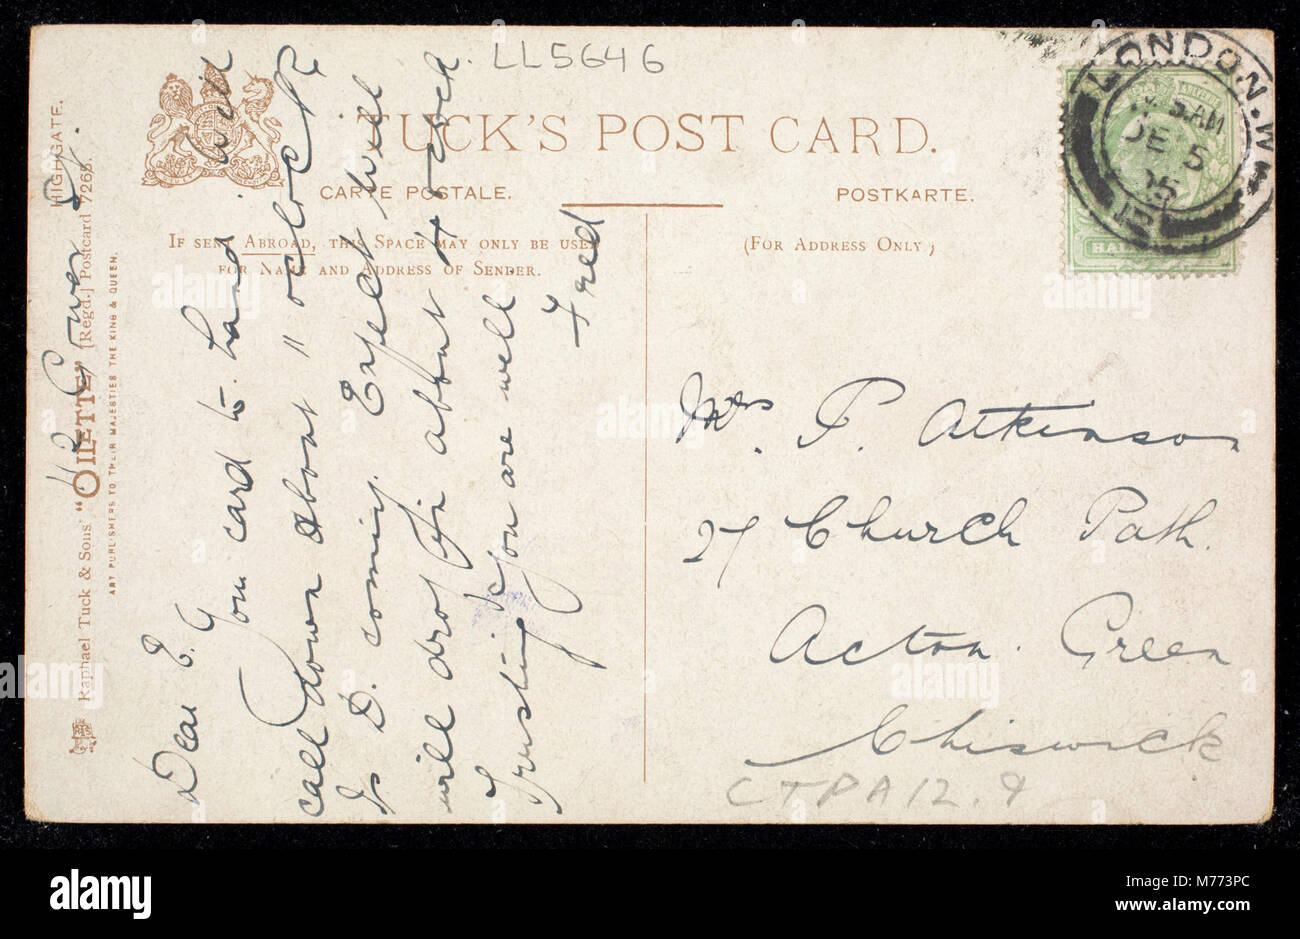 LL5646
TUCK'S POST CARD.
CARTE POSTALE.
POSTKARTE.
IF SENT ABROAD, THIS SPACE MAY ONLY BE USED
FOR NAME AND ADDRESS OF SENDER.
(FOR ADDRESS ONLY)
LONDON. W.
5 AM
DE 5
05
HALF
HIGHGATE.
Raphael Tuck & Sons' "OILETTE" [Regd.] Postcard 7265.
ART PUBLISHERS TO THEIR MAJESTIES THE KING & QUEEN.
Gower
Dear E
Your card to hand will
call down about 11 oclock
Is D. coming. Expect Will
will drop in about 4 oclock.
Trusting you are well
Fred
Mrs F. Atkinson
27 Church Path.
Acton. Green
Chiswick
CTPA12.9
a alamy
alamy
Image ID: M773PC
www.alamy.com